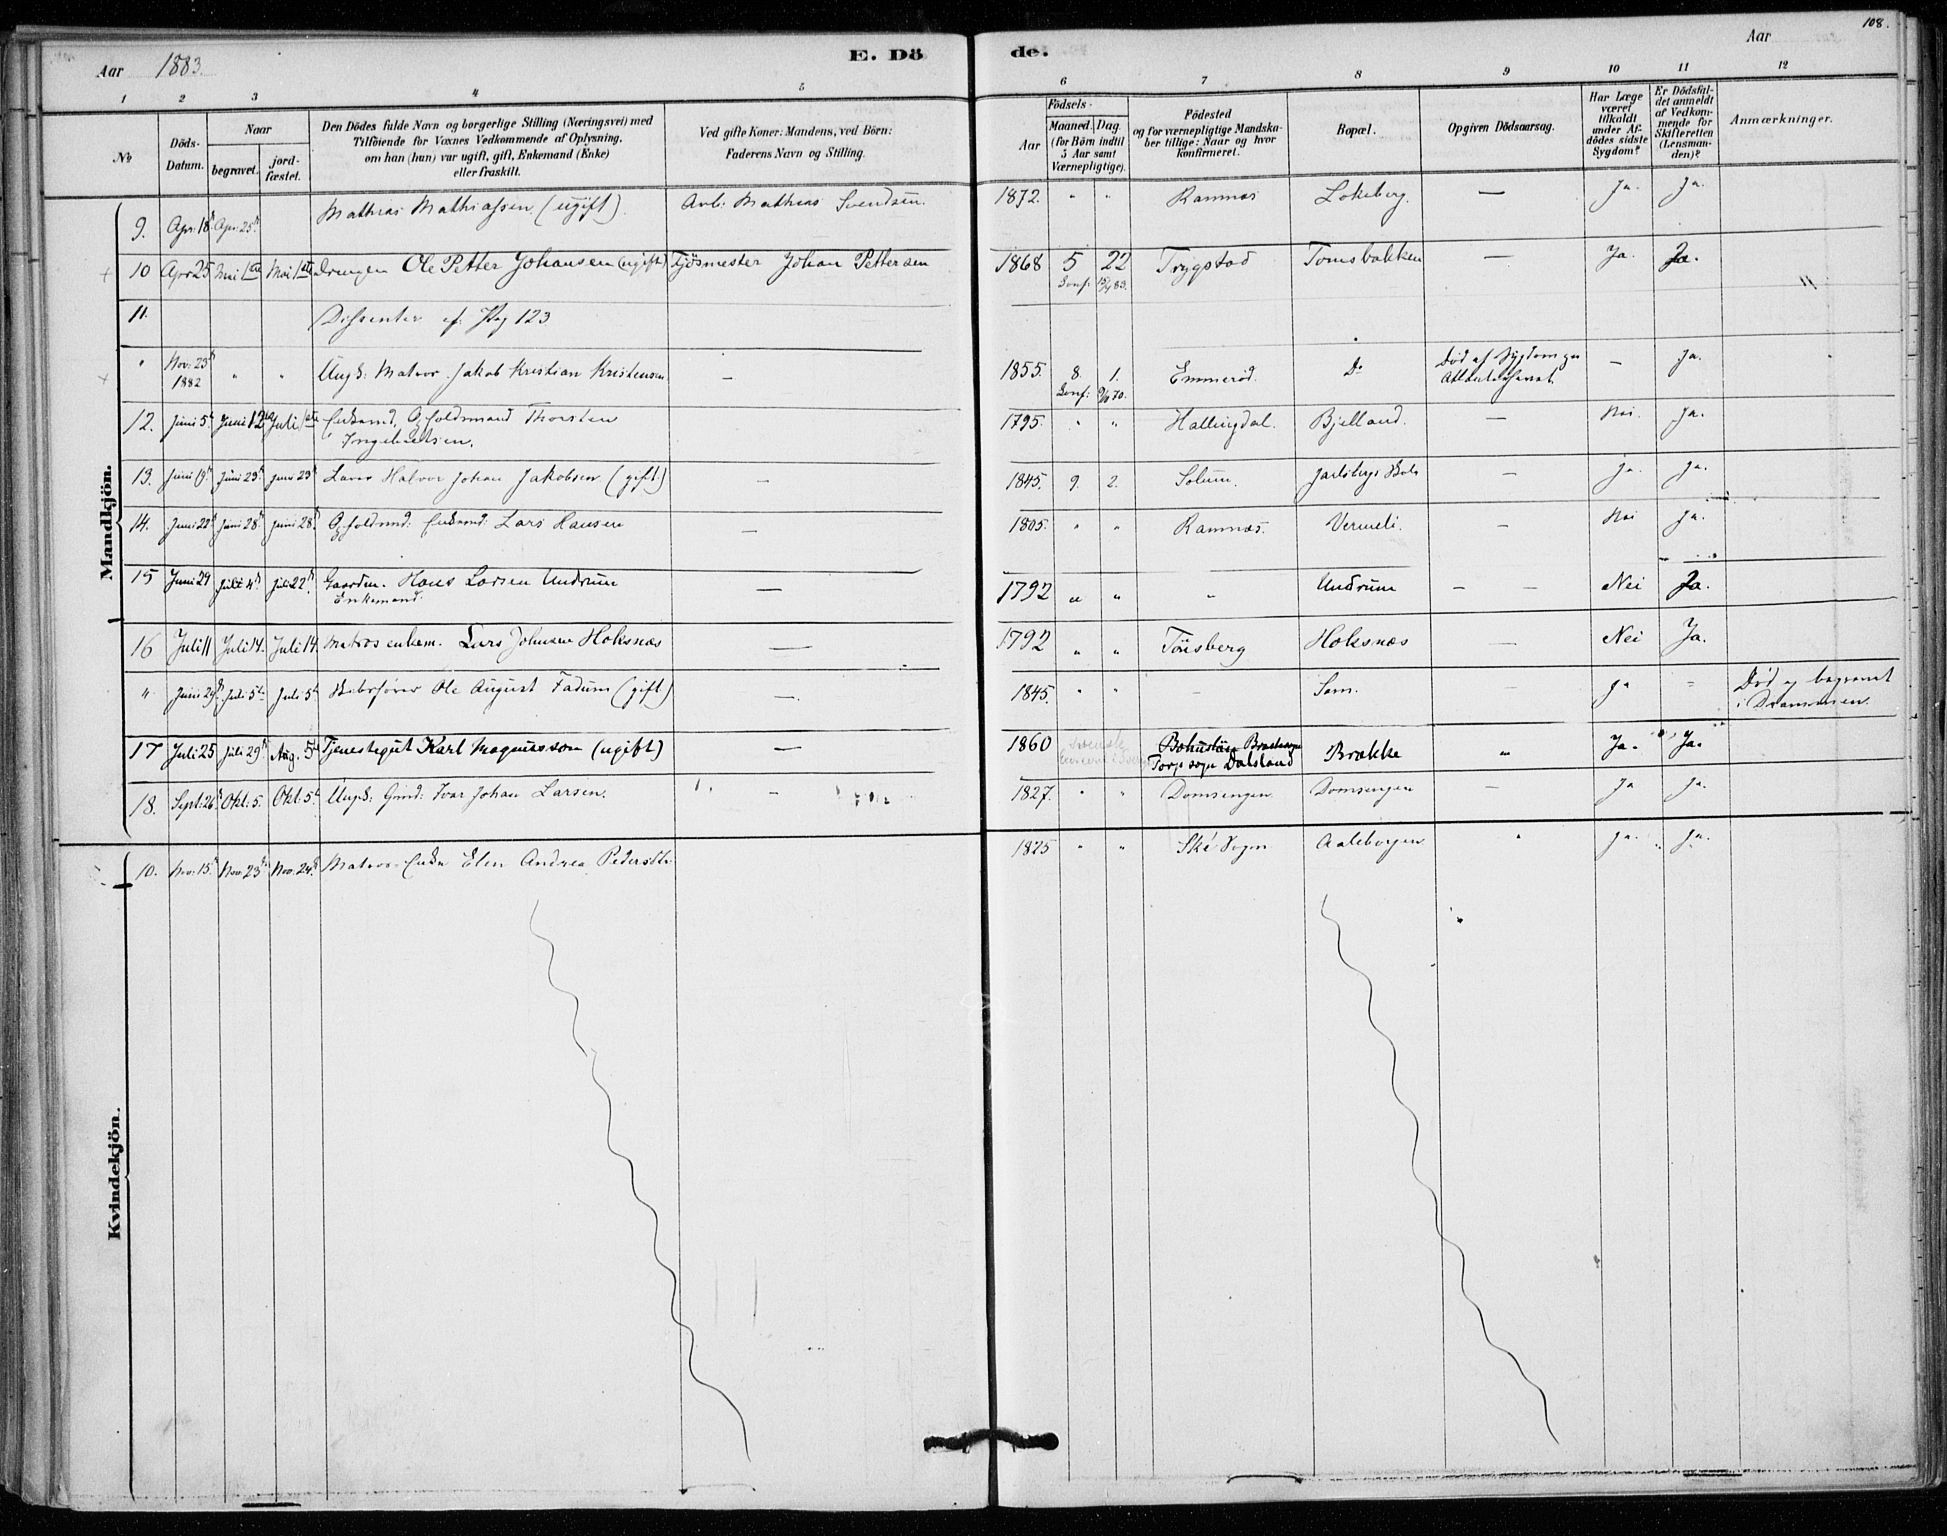 108.
Aar 1883.
E. Dö
de.
Aar
1 2 3 4 5
6 7 8 9 10 11 12
No
Döds-
Datum.
Naar
begravet.
jord-
fæstet.
Den Dödes fulde Navn og borgerlige Stilling (Næringsvei) med
Tilföiende for Voxnes Vedkommende af Oplysning,
om han (hun) var ugift, gift, Enkemand (Enke)
eller fraskilt.
Ved gifte Koner: Mandens, ved Börn:
Faderens Navn og Stilling.
Födsels-
Aar
Maaned. Dag
(for Börn indtil
5 Aar samt
Værnepligtige).
Födested
og for værnepligtige Mandska-
ber tillige: Naar og hvor
konfirmeret.
Bopæl.
Opgiven Dödsaarsag.
Har Læge
været
tilkaldt
under Af-
dödes sidste
Sygdom?
Er Dödsfal-
det anmeldt
af Vedkom-
mende for
Skifteretten
(Lensman-
den)?
Anmærkninger.
Mandkjön.
9. Apr: 18 Apr: 25 Mathias Mathiassen (ugift) Arb: Mathias Svendsen. 1872. " " Ramnæs Lokeberg. — Ja Ja.
10 Apr 25 Mai 1ste Mai 1ste Drengen Ole Petter Johansen (ugift) Johan Pettersen 1868 5 22 Trygstad Tomsbakken — Ja. Ja. "
Conf: 83.
11. Dissenter cf. Pag 123
" Nov: 23 " " Ungk: Matros Jakob Kristian Kristensen — 1855. 8. 1. Emmerød. Do Død af Sygdom — Ja.
1882 Conf: 70.
12. Juni 5 Juni 12 Juli 1ste Enkemd. Thorsten 1795. " " Hallingdal. Bjelland. — Nei. Ja.
Ingebretsen.
13. Juni 19. Juni 23 Juni 23 Halvor Johan Jakobsen (gift) — 1845. 9. 2. Solum. Jarlsbergs — Ja. Ja.
14. Juni 22 Juni 28 Juni 28. Enkemd: Lars Hansen — 1805. " " Ramnæs. Vermeli. — Nei Ja.
15 Juni 29 Juli 4 Juli 22. Gaardm. Hans Larsen Undrum — 1792 " " " Undrum — — Nei Ja.
Enkemand.
16 Juli 11 Juli 14. Juli 14. Matros enkem. Lars Johnsen Hoksnæs — 1792 " " Tönsberg Hoksnæs — Nei Ja.
" Juni 29 Juli 5 Juli 5 Skibsfører Ole August Fadum (gift) — 1845. " " — Sem. — Ja " Død og begravet
i Drammen.
17 Juli 25 Juli 29 Aug. 5 Tjenestegut Karl Magnusson (ugift) — 1860 Bohuslän Brække " Ja. Ja.
Torp sogn Dalsland
18. Sept: 26 Okt: 5. Okt: 5 Ungk: Gmd: Ivar Johan Larsen. — 1827. " " Domsengen Domsengen — Ja Ja.
Kvindekjön.
10. Nov: 15 Nov: 23 Nov: 24 Matros-Enke Elen Andrea 1825 " " Aaleborgen " Ja. Ja.